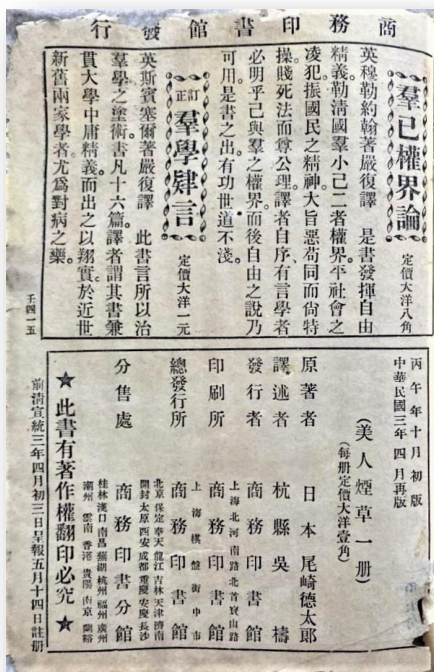 商務印書館發行
羣己權界論
定價大洋八角
英穆勒約翰著嚴復譯 是書發揮自由
精義勒清國羣小己二者權界平社會之
凌犯振國民之精神大旨惡苟同而尙特
操賤死法而尊公理譯者自序有言學者
必明乎己與羣之權界而後自由之說乃
可用是書之出有功世道不淺
訂正 羣學肄言
定價大洋一元
英斯賓塞爾著嚴復譯 此書言所以治
羣學之塗術書凡十六篇譯者謂其書兼
貫大學中庸精義而出之以翔實於近世
新舊兩家學者尤爲對病之藥
壬四一五
丙午年十月初版
中華民國三年四月再版
(美人煙草一册)
(每册定價大洋壹角)
原著者 日本 尾崎德太郎
譯述者 杭縣吳檮
發行者 商務印書館
上海北河南路北首寶山路
印刷所 商務印書館
上海棋盤街中市
總發行所 商務印書館
北京 保定 奉天 龍江 吉林 天津 濟南
開封 太原 西安 成都 重慶 安慶 長沙
分售處 商務印書分館
桂林 漢口 南昌 蕪湖 杭州 福州 廣州
潮州 雲南 香港 貴陽 南京 蘭谿
★此書有著作權翻印必究★
前清宣統三年四月初三日呈報五月十四日註册